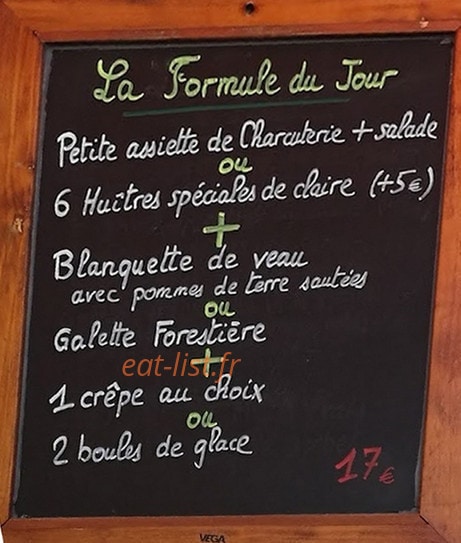 La Formule du Jour
Petite assiette de Charcuterie + salade
ou
6 Huîtres spéciales de claire (+5€)
+
Blanquette de veau
avec pommes de terre sautées
ou
Galette Forestière
+
eat-list.fr
1 crêpe au choix
ou
2 boules de glace
17€
VEGA